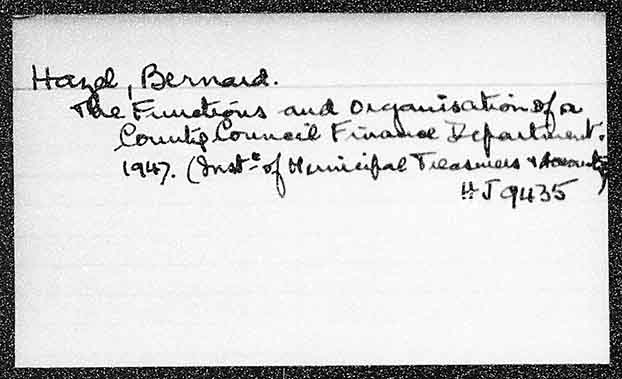 Hazel, Bernard.
The Functions and Organisation of a
County Council Finance Department.
1947. (Inst^e of Municipal Treasurers & Accounts)
HJ 9435